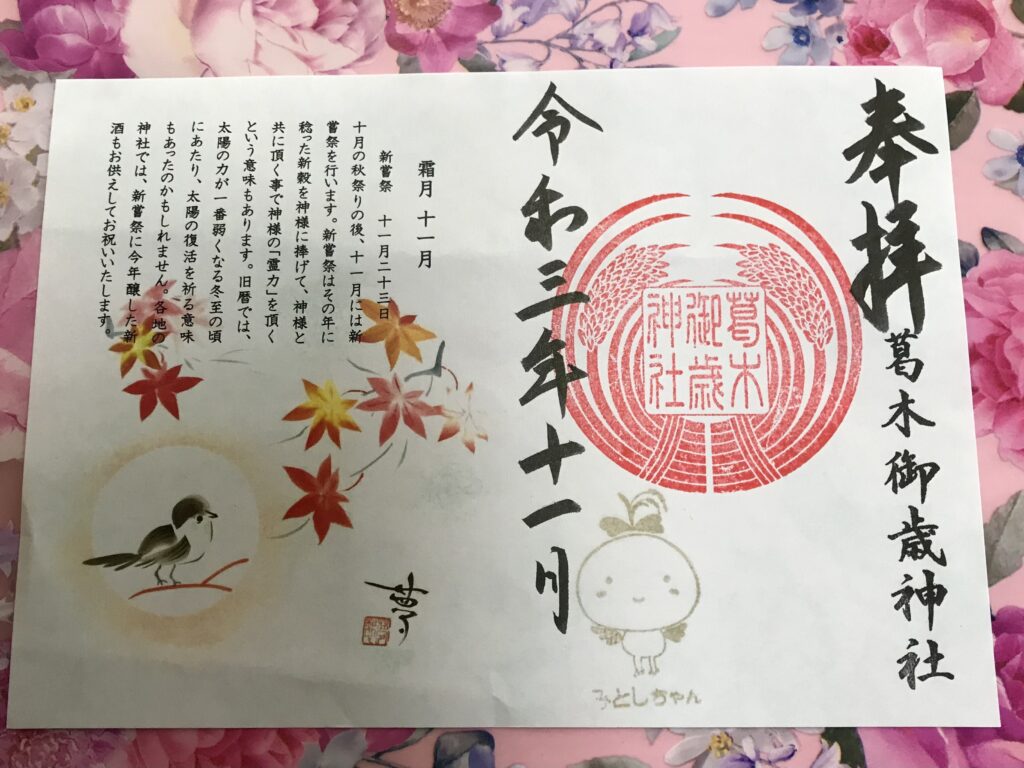 奉拝
葛木御歳神社
葛木
御歳
神社
令和三年十一月
みとしちゃん
霜月 十一月
新嘗祭 十一月二十三日
十月の秋祭りの後、十一月には新
嘗祭を行います。新嘗祭はその年に
稔った新穀を神様に捧げて、神様と
共に頂く事で神様の「霊力」を頂く
という意味もあります。旧暦では、
太陽の力が一番弱くなる冬至の頃
にあたり、太陽の復活を祈る意味
もあったのかもしれません。各地の
神社では、新嘗祭に今年醸した新
酒もお供えしてお祝いいたします。